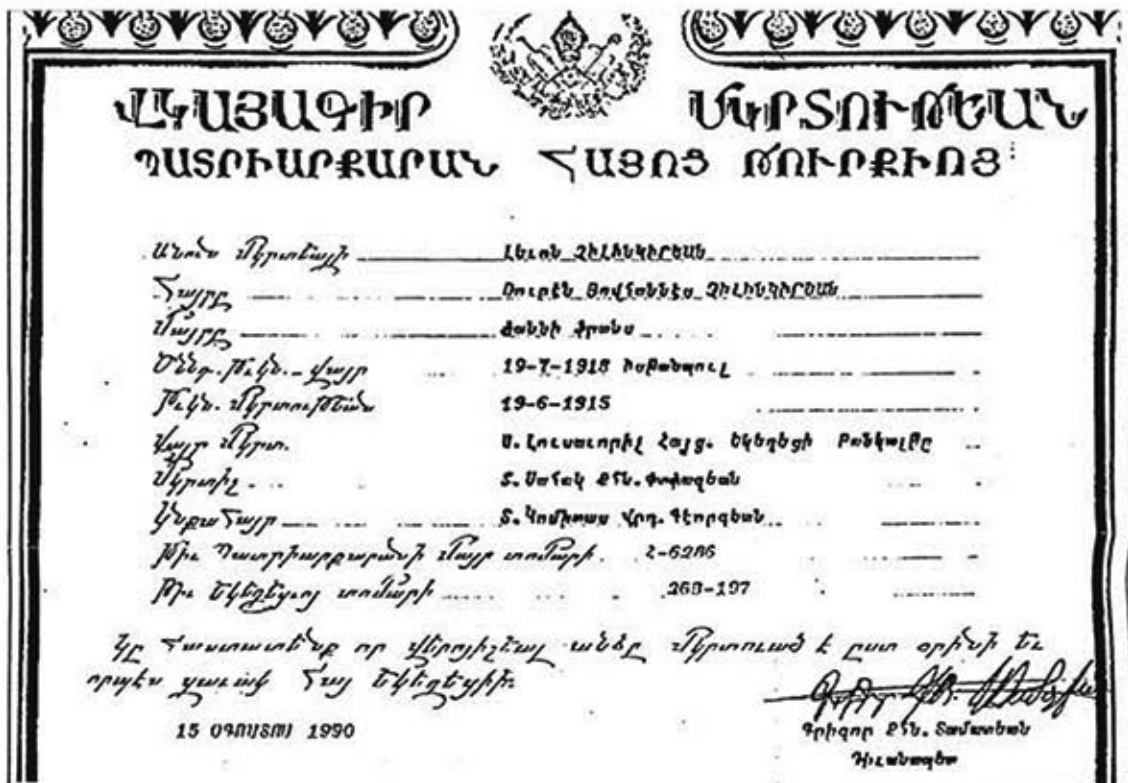 ՎԿԱՅԱԳԻՐ ՄԿՐՏՈՒԹԵԱՆ
ՊԱՏՐԻԱՐՔԱՐԱՆ ՀԱՅՈՑ ԹՈՒՐՔԻՈՅ
Անուն Մկրտելոյի Լեւոն Չիլինկիրեան
Հայրը Սուրէն Յովհաննէս Չիլինկիրեան
Մայրը Ժաննի Ֆրանս
Ծննդ. Թւկն. – վայր 19-7-1918 Իսթանպուլ
Թւկն. Մկրտութեան 19-6-1915
Վայր Մկրտ. Ս. Լուսաւորիչ Հայց. Եկեղեցի Բանկալթը
Մկրտիչ Տ. Սահակ Քհն.
Կնքահայր Տ. Կոմիտաս Վրդ. Գէորգեան
Թիւ Պատրիարքարանի Մայր տոմարի 2-6286
Թիւ Եկեղեցւոյ տոմարի 268-197
Կը հաստատենք որ վերոյիշեալ անձը մկրտուած է ըստ օրինի եւ
որպէս զաւակ Հայ Եկեղեցիին.
15 ՕԳՈՍՏՈՍ 1990
Գրիգոր Քհն. Տամատեան
Դիւանապետ